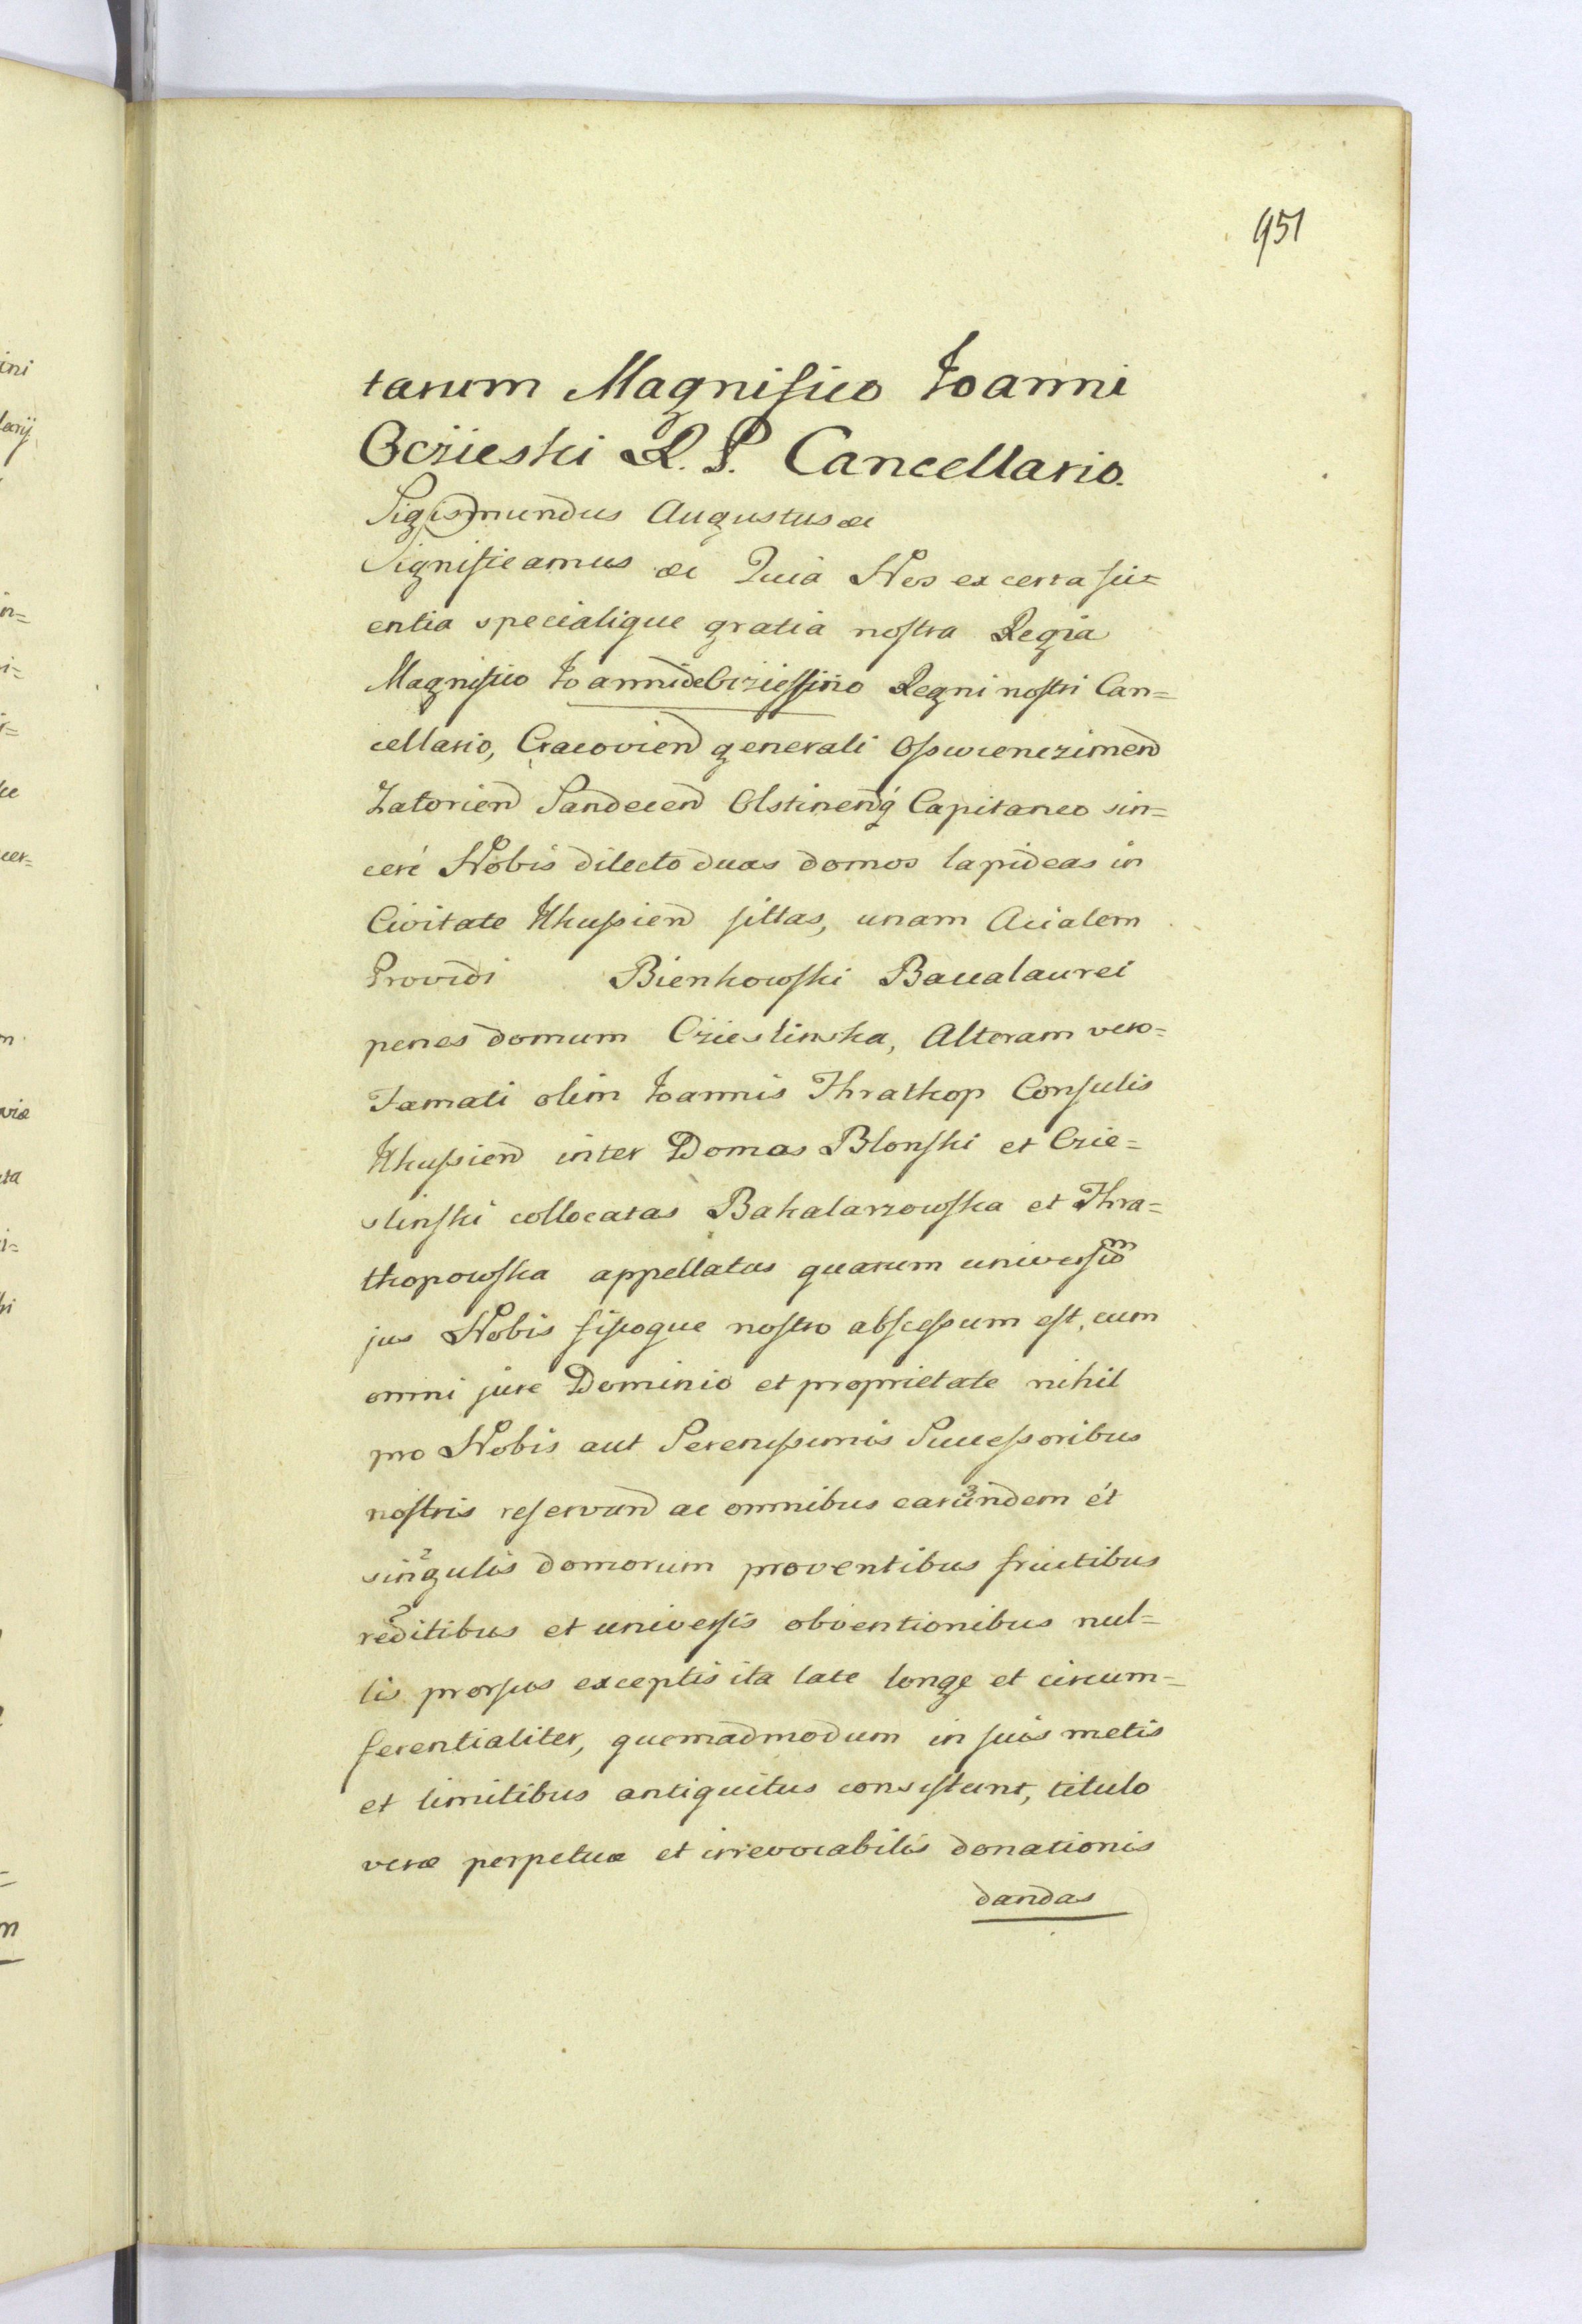 951
tarum Magnifico Joanni
Oczieski R. P. Cancellario.
Sigismundus Augustus &c
Significamus &c Quia Nos ex certa sci=
entia specialique gratia nostra Regia
Magnifico Joanni de Ocziessino Regni nostri Can=
cellario, Cracovien generali Osswienczimen
Zatorien Sandecen Olstinenq Capitaneo sin=
cere Nobis dilecto duas domos lapideas in
Civitate Ilkussien sittas, unam Acialem
Providi Bienkowski Baccalaurei
penes domum Czieslinska, Alteram vero=
Famati olim Joannis Thratkop Consulis
Ilkussien inter Domas Blonski et Czie=
slinski collocatas Bakalarzowska et Thra=
tkopowska appellatas quarum universum
jus Nobis fiscoque nostro abscessum est, cum
omni jure Dominio et proprietate nihil
pro Nobis aut Serenissimis Successoribus
nostris reservan ac omnibus earundem et
singulis domorum proventibus fructibus
reditibus et universis obventionibus nul=
lis prorsus exceptis ita late longe et circum=
ferentialiter, quemadmodum in suis metis
et limitibus antiquitus consistunt, titulo
veræ perpetuæ et irrevocabilis donationis
dandas